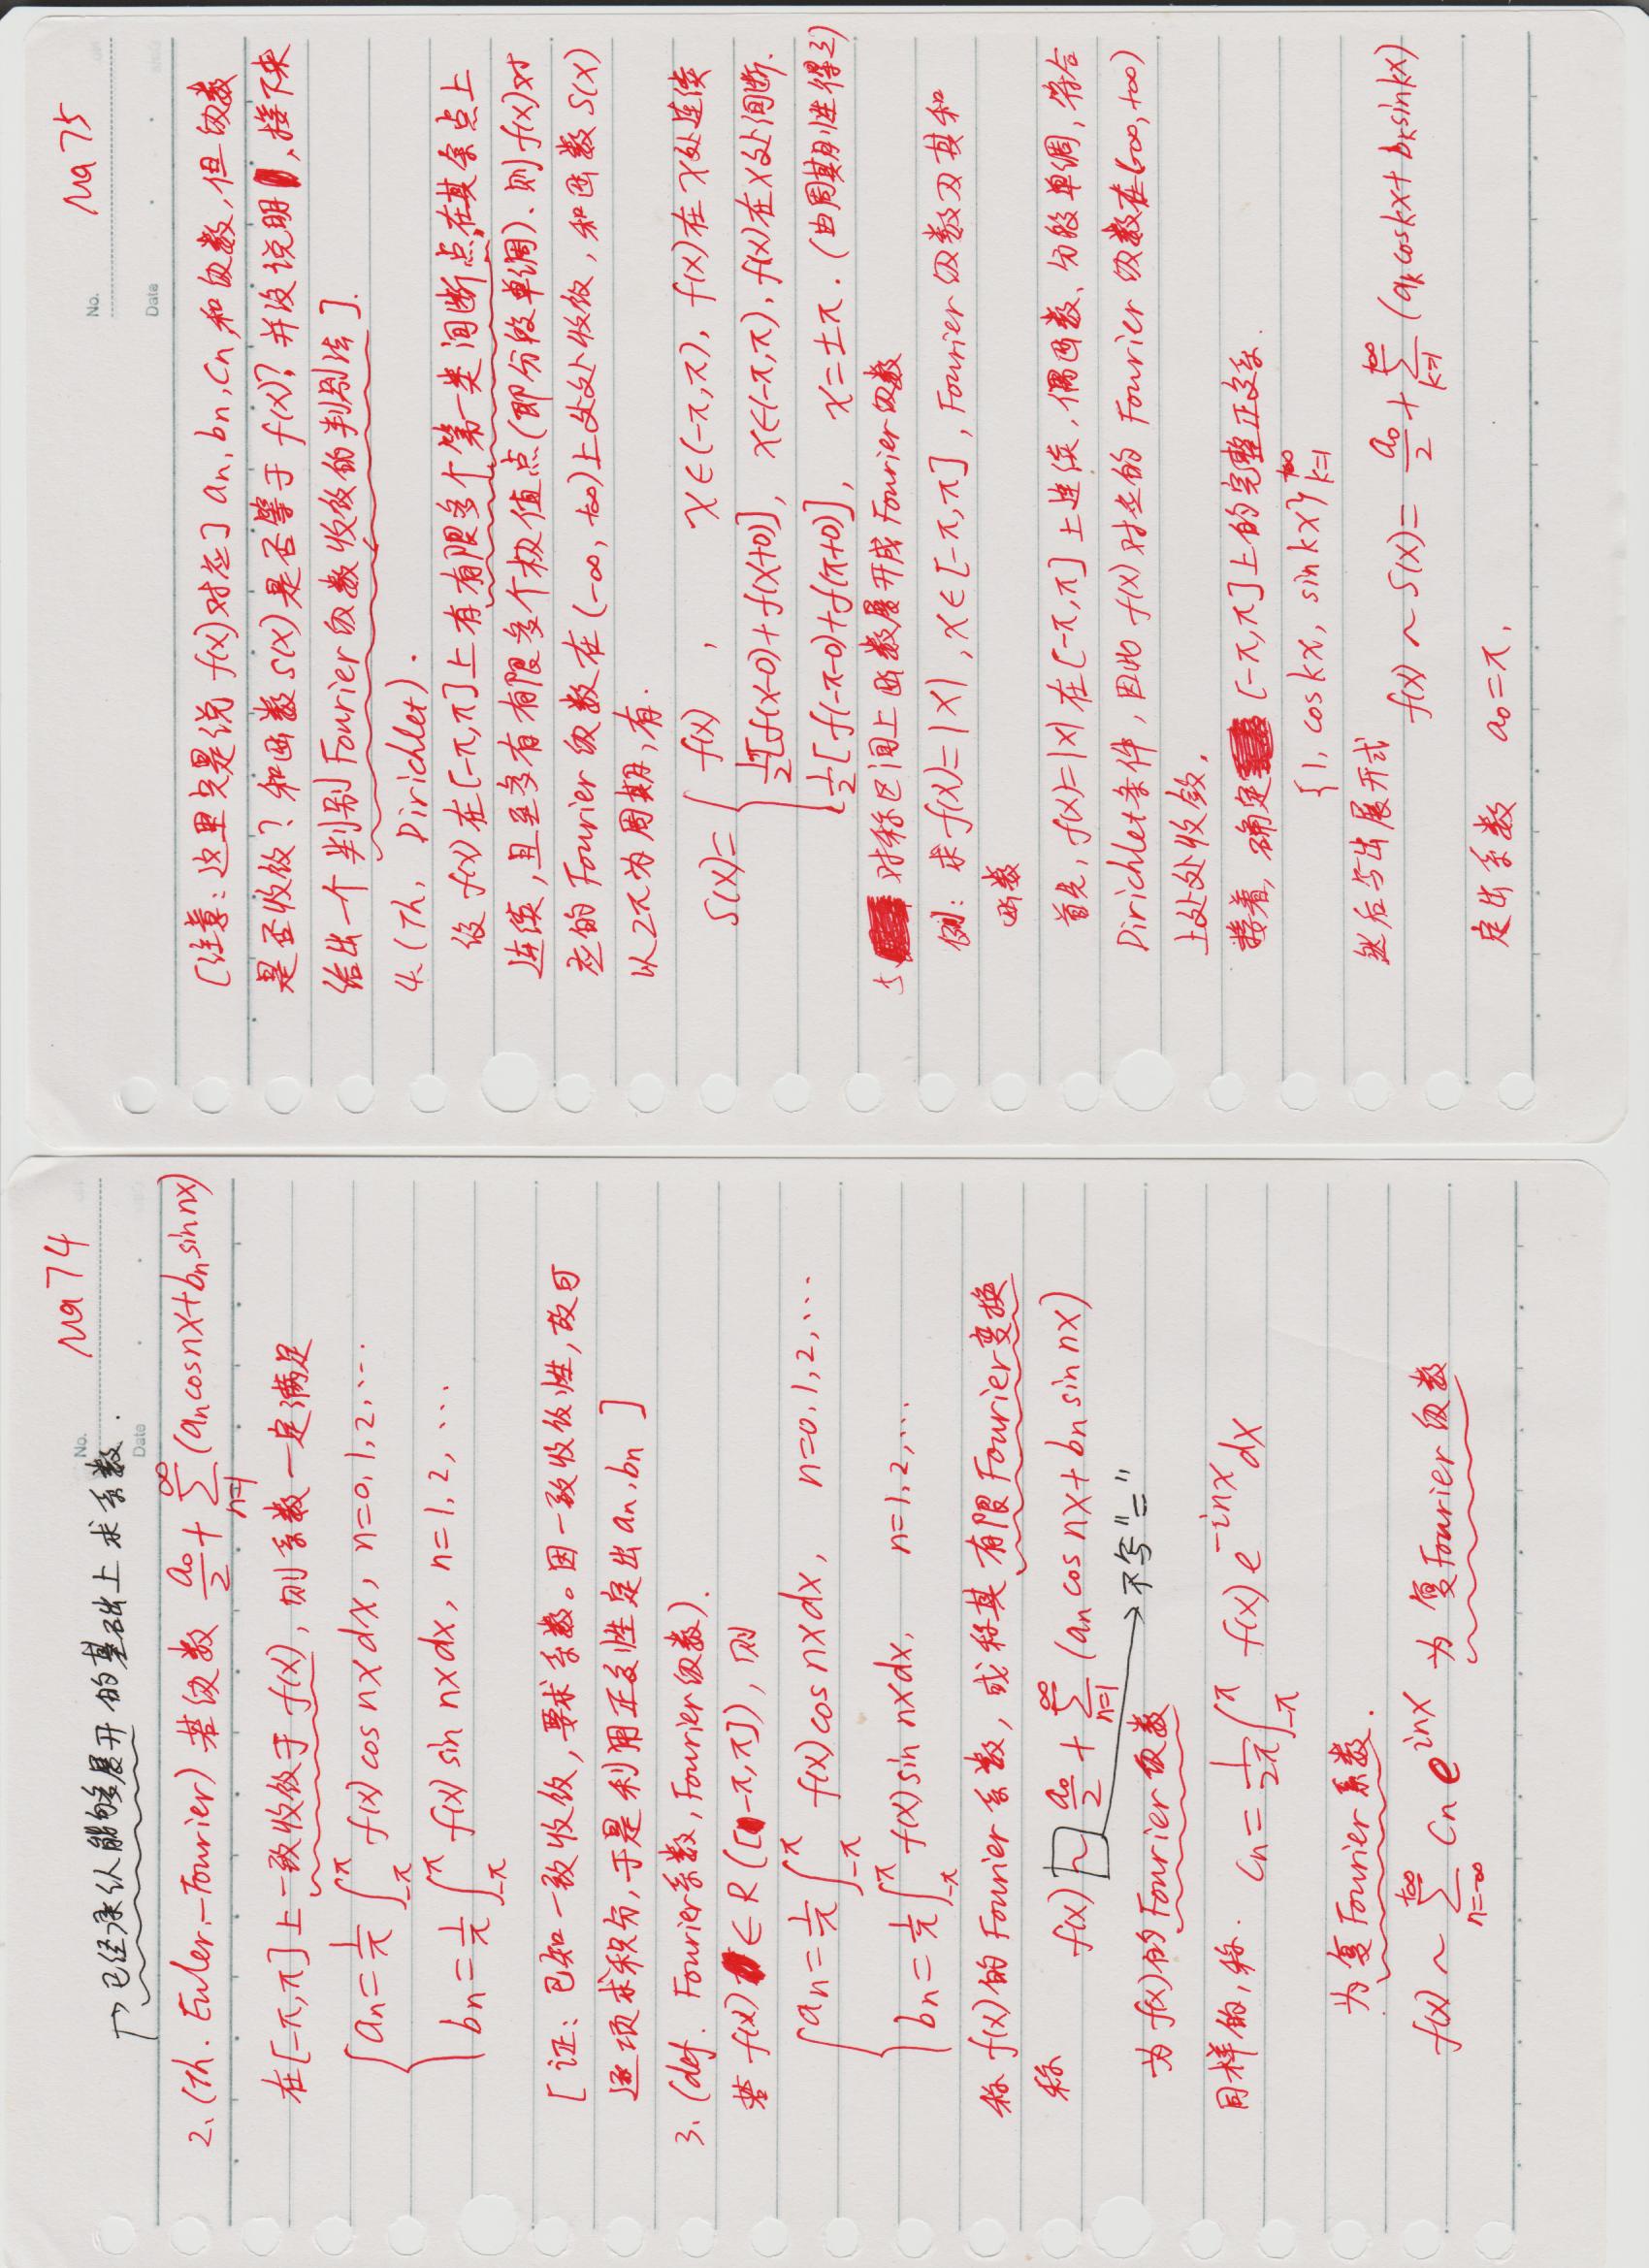 No.
Ma 74
Date
已经承认能够展开的基础上求系数.
2. (Th. Euler-Fourier) 若级数 a₀/2 + ∑_{n=1}^{∞} (aₙcosnx+bₙsinnx)
在[-π,π]上一致收敛于 f(x), 则系数一定满足
aₙ = 1/π ∫_{-π}^{π} f(x) cos nx dx, n=0,1,2,…
bₙ = 1/π ∫_{-π}^{π} f(x) sin nx dx, n=1,2,…
[证: 已知一致收敛,要求系数。因一致收敛性,故可
逐项求积分,于是利用正交性定出aₙ,bₙ ]
3. (def. Fourier系数, Fourier级数).
若 f(x) ∈ R([-π,π]), 则
aₙ = 1/π ∫_{-π}^{π} f(x) cos nx dx, n=0,1,2,…
bₙ = 1/π ∫_{-π}^{π} f(x) sin nx dx, n=1,2,…
称 f(x)的 Fourier 系数, 或称其有限Fourier变换
称
f(x) ~ a₀/2 + ∑_{n=1}^{∞} (aₙ cos nx+bₙ sin nx)
不写"="
为 f(x)的Fourier 级数
同样的,称. cₙ = 1/2π ∫_{-π}^{π} f(x) e^{-inx} dx
为复Fourier系数.
f(x) ~ ∑_{n=-∞}^{+∞} cₙ e^{inx} 为 复Fourier级数
No.
Ma 75
Date
[注意:这里只是说 f(x)对应了 aₙ, bₙ, cₙ和级数,但级数
是否收敛?和函数 S(x)是否等于 f(x)?并没说明,接下来
给出一个判别Fourier级数收敛的判别法].
4. (Th. Dirichlet).
设 f(x)在[-π,π]上有有限多个第一类间断点,在其余点上
连续,且至多有有限多个极值点(即分段单调).则 f(x)对
应的 Fourier 级数在(-∞,+∞)上处处收敛,和函数 S(x)
以2π为周期,有.
S(x)= f(x), x∈(-π,π), f(x)在 x处连续
1/2[f(x-0)+f(x+0)], x∈(-π,π), f(x)在x处间断.
1/2[f(-π-0)+f(π+0)], x=±π. (由周期性得之)
5. 对称区间上函数展开成 Fourier级数
例: 求 f(x)=|x|, x∈[-π,π], Fourier 级数及其和
函数
首先, f(x)=|x|在[-π,π]上连续,偶函数、分段单调,符合
Dirichlet条件,因此 f(x)对应的 Fourier 级数在(-∞,+∞)
上处处收敛.
接着,确定 [-π,π]上的完整正交系.
{1, coskx, sinkx}_{k=1}^{+∞}
然后写出展开式
f(x) ~ S(x)= a₀/2 + ∑_{k=1}^{+∞} (aₖcoskx+bₖsinkx)
定出系数 a₀=π,